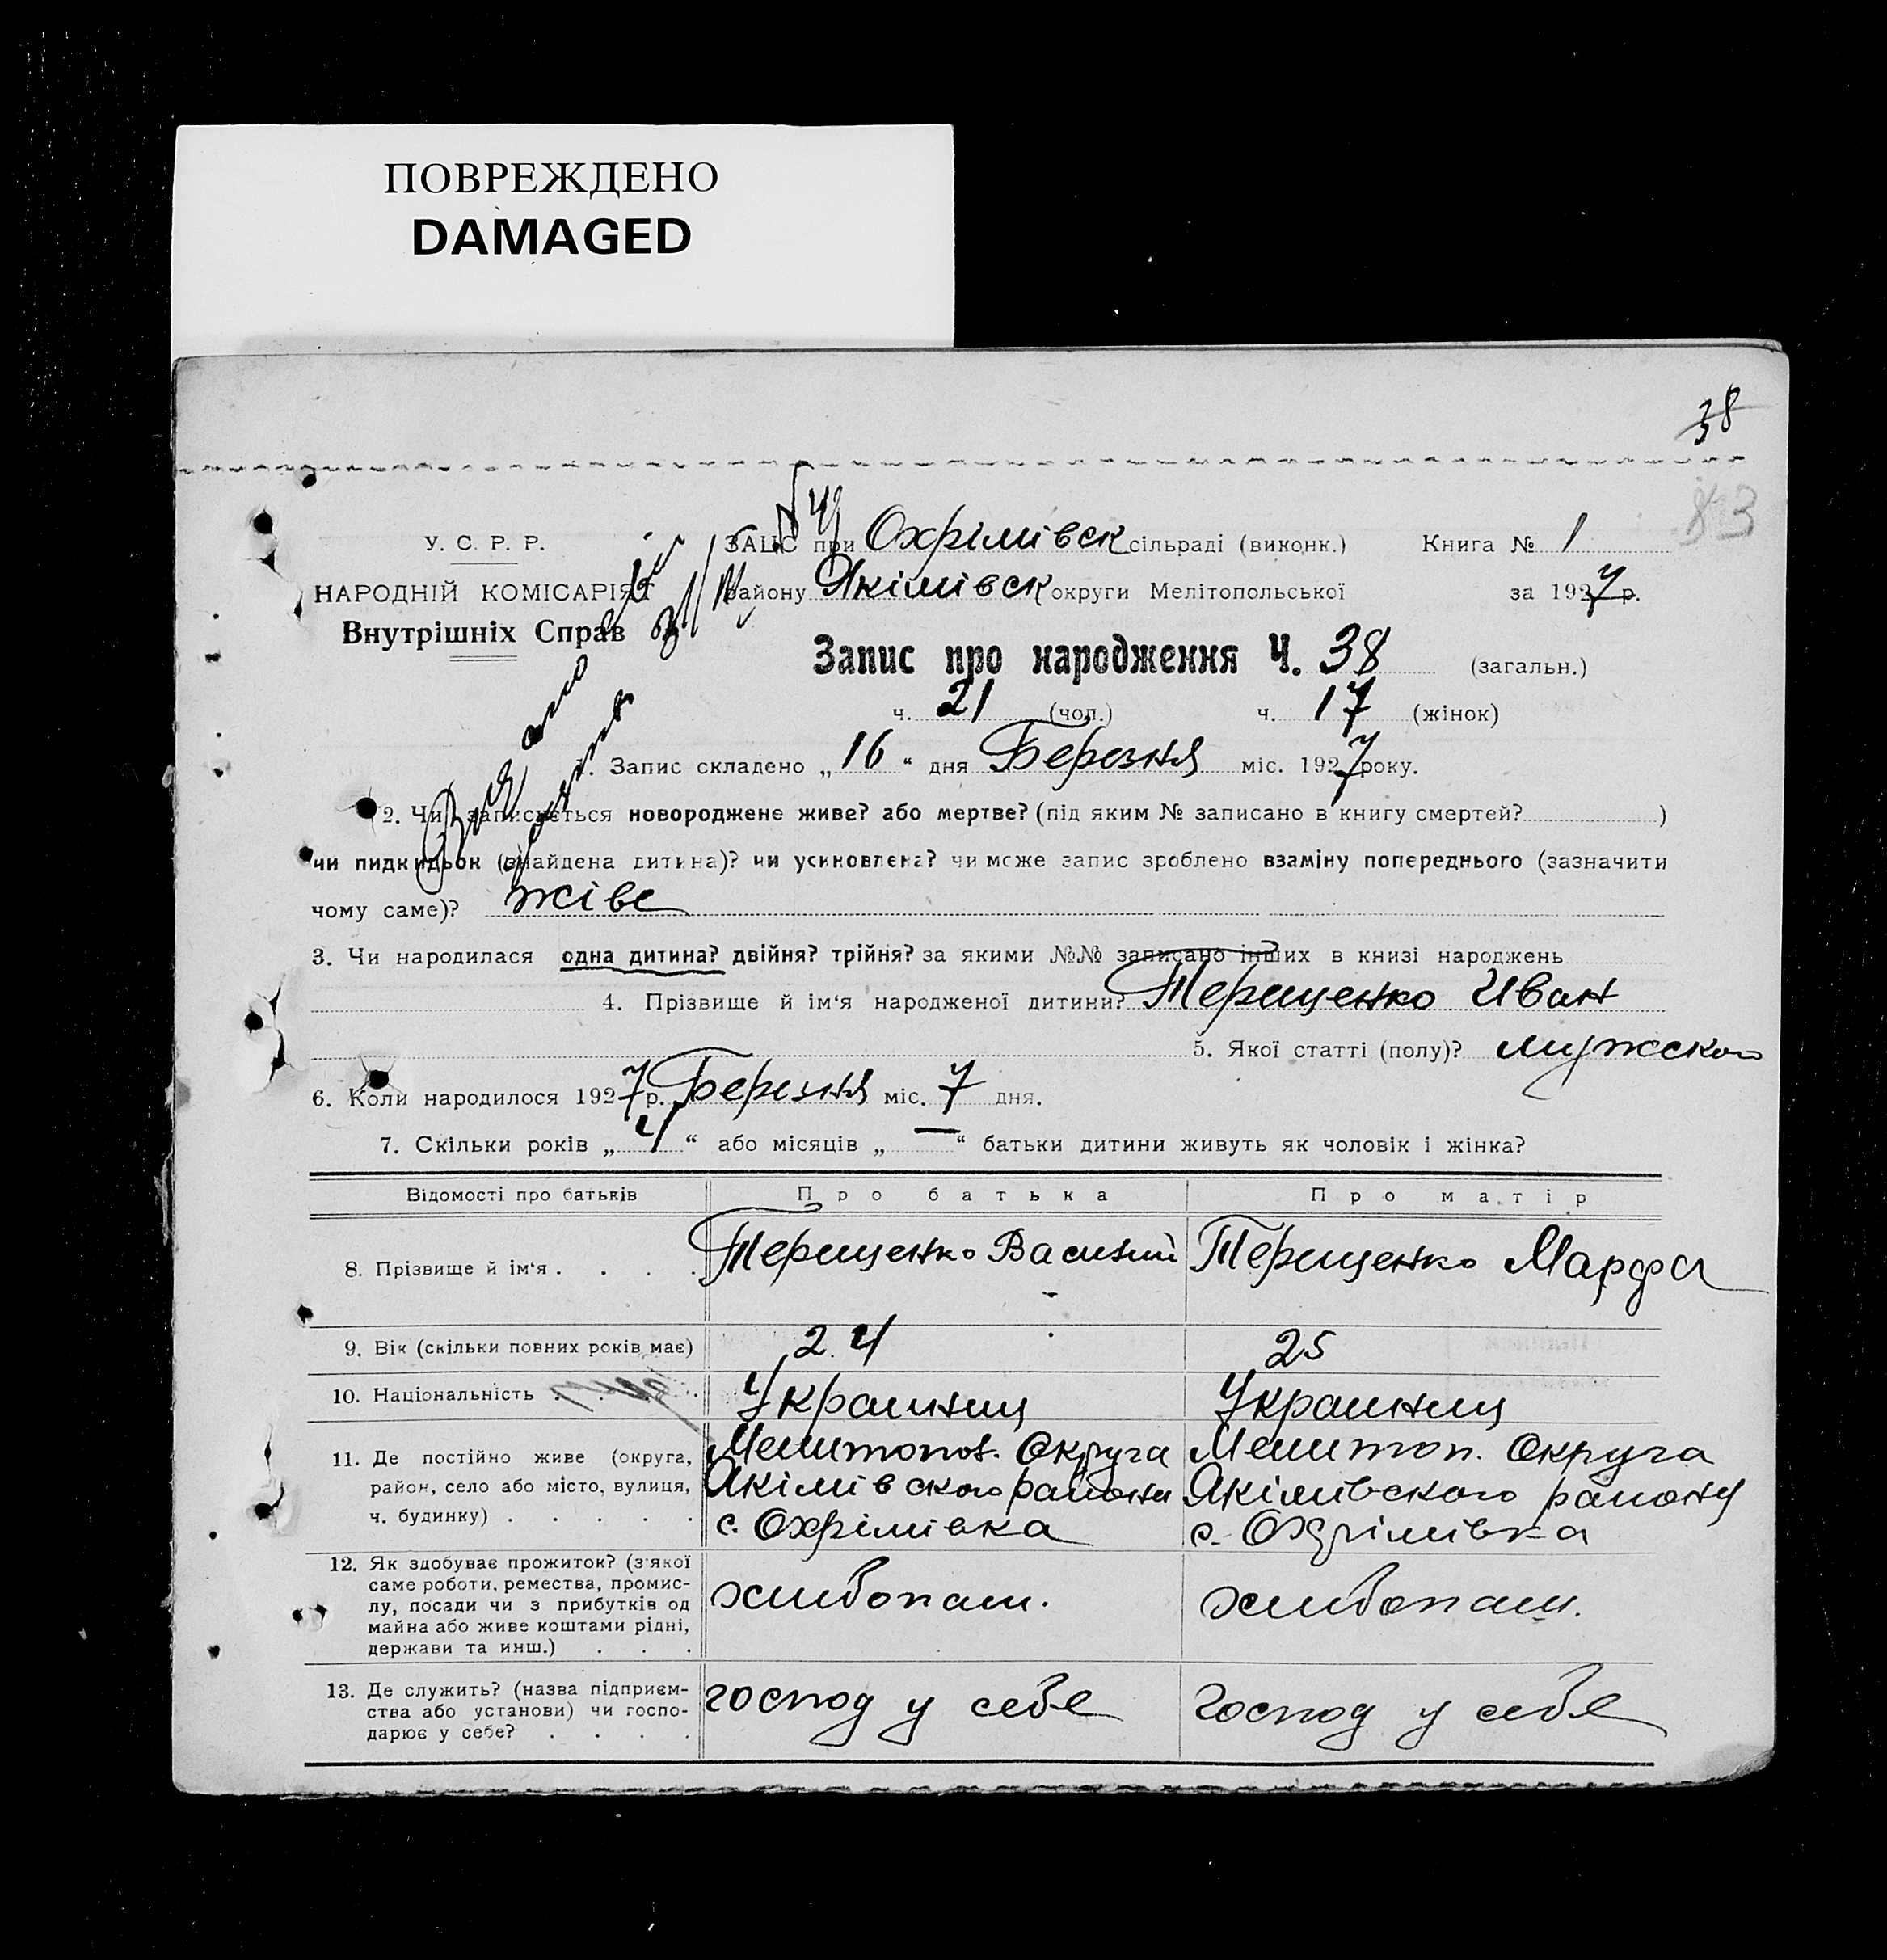 ПОВРЕЖДЕНО
DAMAGED
38
83
У. С. Р. Р.
ЗАЦС при Охрімівск сільраді (виконк.) Книга № 1
НАРОДНІЙ КОМІСАРІЯТ
району Якімівск округи Мелітопольської за 1927 р.
Внутрішніх Справ
Запис про народження Ч. 38 (загальн.)
ч. 21 (чол.) ч. 17 (жінок)
1. Запис складено „16“ дня Березня міс. 1927 року.
2. Чи записується новороджене живе? або мертве? (під яким № записано в книгу смертей? )
чи пидкидьок (знайдена дитина)? чи усиновлена? чи може запис зроблено взаміну попереднього (зазначити
чому саме)? жіве
3. Чи народилася одна дитина? двійня? трійня? за якими №№ записано інших в книзі народжень
4. Прізвище й ім‘я народженої дитини? Терещенко Иван
5. Якої статті (полу)? мужского
6. Коли народилося 1927 р. Березня міс. 7 дня.
7. Скільки років „4“ або місяців „—“ батьки дитини живуть як чоловік і жінка?
Відомості про батьків Про батька Про матір
8. Прізвище й ім‘я . . . . Терещенко Василий Терещенко Марфа
9. Вік (скільки повних років має) 24 25
10. Національність . . . . Украинец Украинец
11. Де постійно живе (округа, Мелитопол. Округа Мелитоп. Округа
район, село або місто, вулиця, Якімівского района Якімівского района
ч. будинку) . . . . . с. Охрімівка с. Охрімівка
12. Як здобуває прожиток? (з‘якої
саме роботи, ремества, промис-
лу, посади чи з прибутків од хлибопаш. хлибопаш.
майна або живе коштами рідні,
держави та инш.) . . .
13. Де служить? (назва підприєм- господ у себе господ у себе
ства або установи) чи госпо-
дарює у себе? . . . .